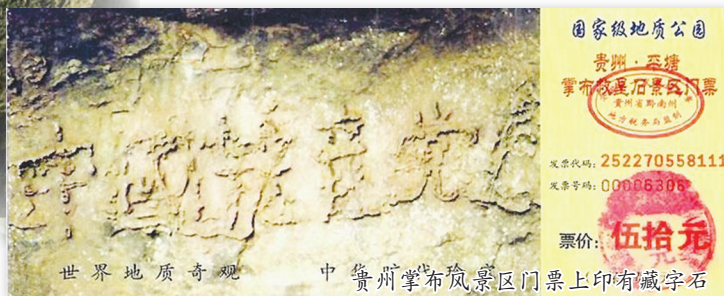 国家级地质公园
贵州·平塘
掌布救星石景区门票
贵州省黔南州
地方税务局监制
中國共产党亡
发票代码：252270558111
发票号码：00006306
票价：伍拾元
世界地质奇观 中华旷代珍
贵州掌布风景区门票上印有藏字石